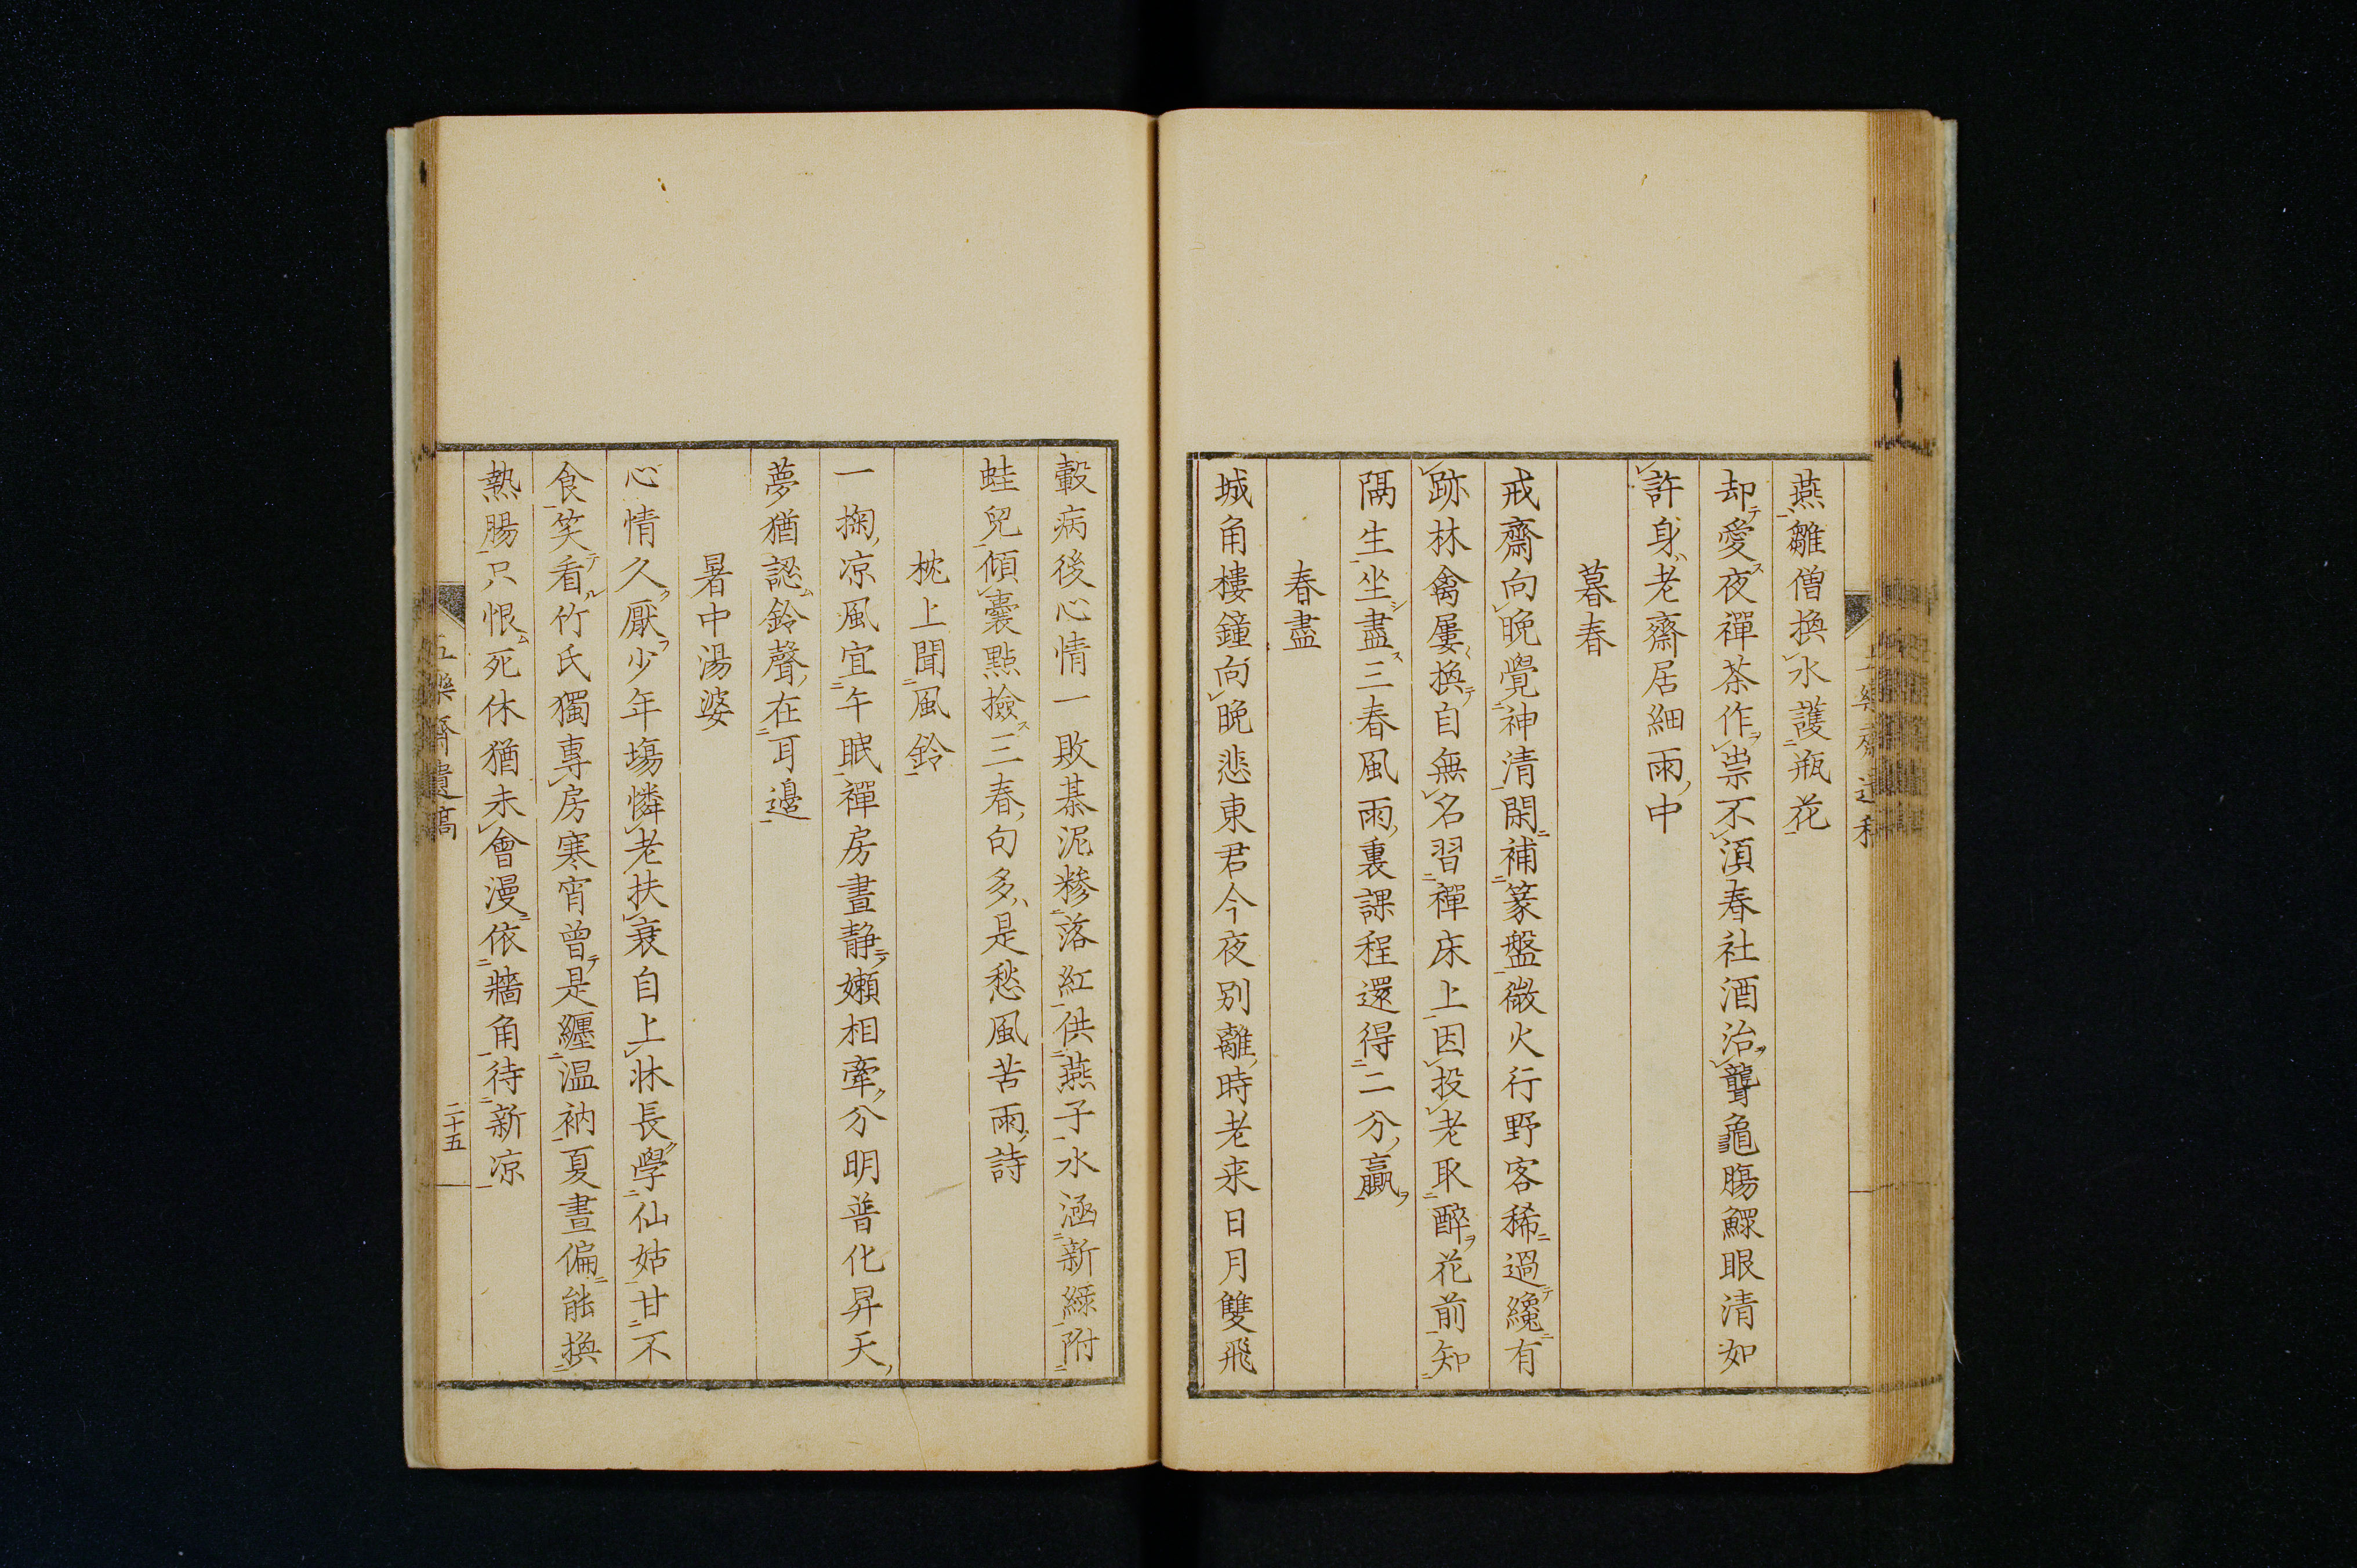 燕雛僧換水護瓶花
却愛夜禪茶作祟不湏春社酒治聾龜腸鰥眼清如
許身老齋居細雨中
暮春
戒齋向晩覺神清閑補篆盤微火行野客稀過纔有
跡林禽屢換自無名習禪床上因投老取醉花前知
隔生坐盡三春風雨裏課程還得二分贏
春盡
城角樓鐘向晩悲東君今夜別離時老来日月雙飛
轂病後心情一敗棊泥糝落紅供燕子水涵新緑附
蛙兒傾囊點撿三春句多是愁風苦雨詩
枕上聞風鈴
一掬凉風宜午眠禪房晝静嬾相牽分明普化昇天
夢猶認鈴聲在耳邊
暑中湯婆
心情久厭少年塲憐老扶衰自上牀長學仙姑甘不
食笑看竹氏獨專房寒宵曾是纒温衲夏晝偏能換
熱腸只恨死休猶未會漫依牆角待新凉
二十五